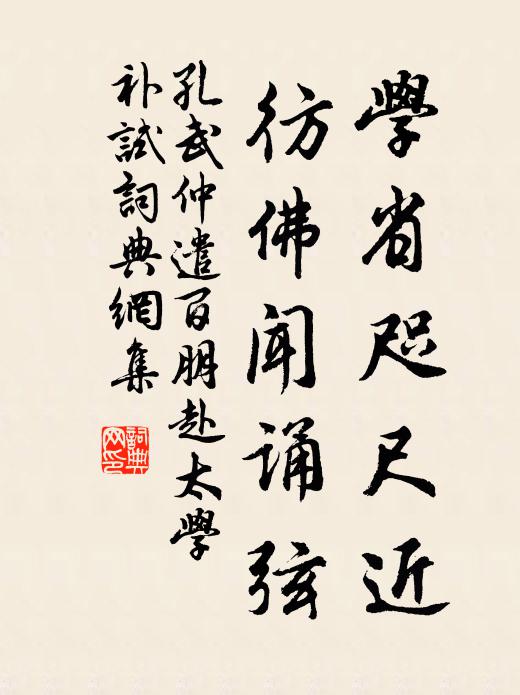 學省咫尺近
彷佛聞诵弦
孔武仲遣百朋赴太學
补試詞典網集
詞典網印